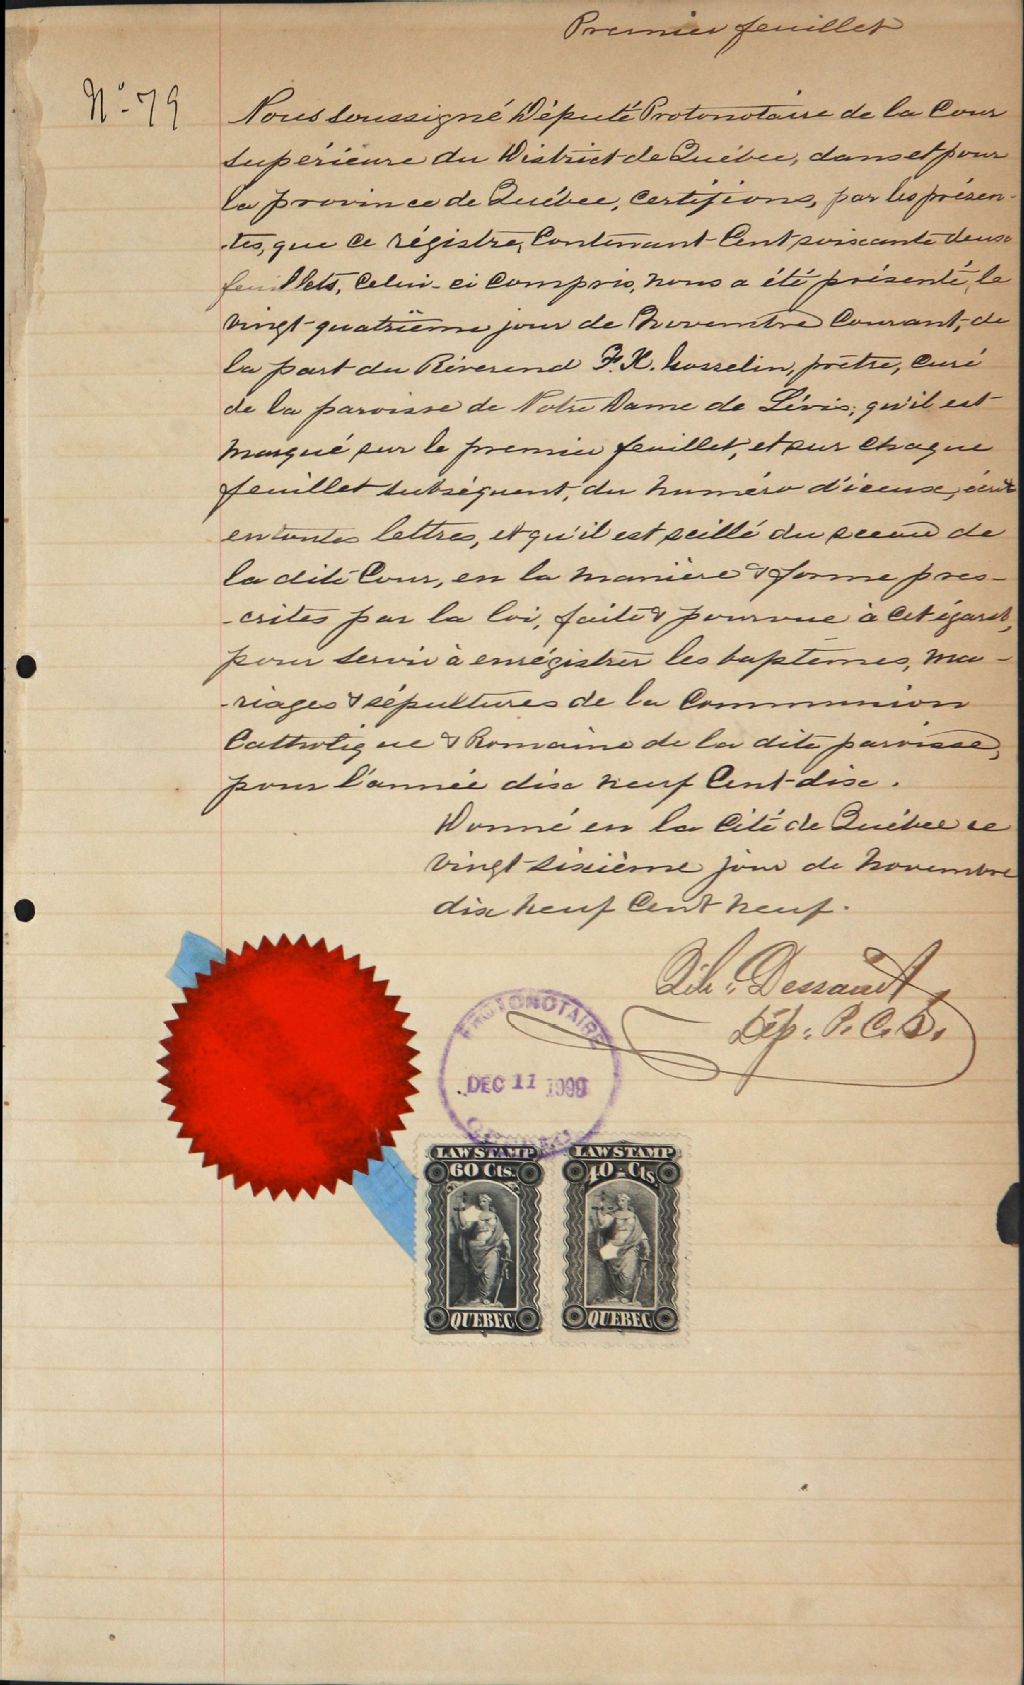 Premier feuillet
N° 79
Nous soussigné Député Protonotaire de la Cour
supérieure du District de Québec, dans et pour
la province de Québec, certifions, par les présen-
-tes, que ce régistre, contenant cent soixante deux
feuillets, celui-ci compris, nous a été présenté, le
vingt-quatrième jour de Novembre courant, de
la part du Révérend F. X. Gosselin, prêtre, curé
de la paroisse de Notre Dame de Lévis; qu'il est
marqué sur le premier feuillet, et sur chaque
feuillet subséquent, du numéro d'iceux, écrit
en toutes lettres, et qu'il est scellé du sceau de
la dite Cour, en la manière & forme pres-
-crites par la loi, faite & pourvue à cet égard,
pour servir à enrégistrer les baptêmes, ma-
-riages & sépultures de la Communion
Catholique & Romaine de la dite paroisse,
pour l'année dix neuf cent dix.
Donné en la Cité de Québec ce
vingt-sixième jour de novembre
dix neuf cent neuf.
Dessault
Dép. P. C. S.
PROTONOTAIRE
DEC 11 1909
QUEBEC
LAW STAMP LAW STAMP
60 Cts. 40-Cts.
QUEBEC QUEBEC